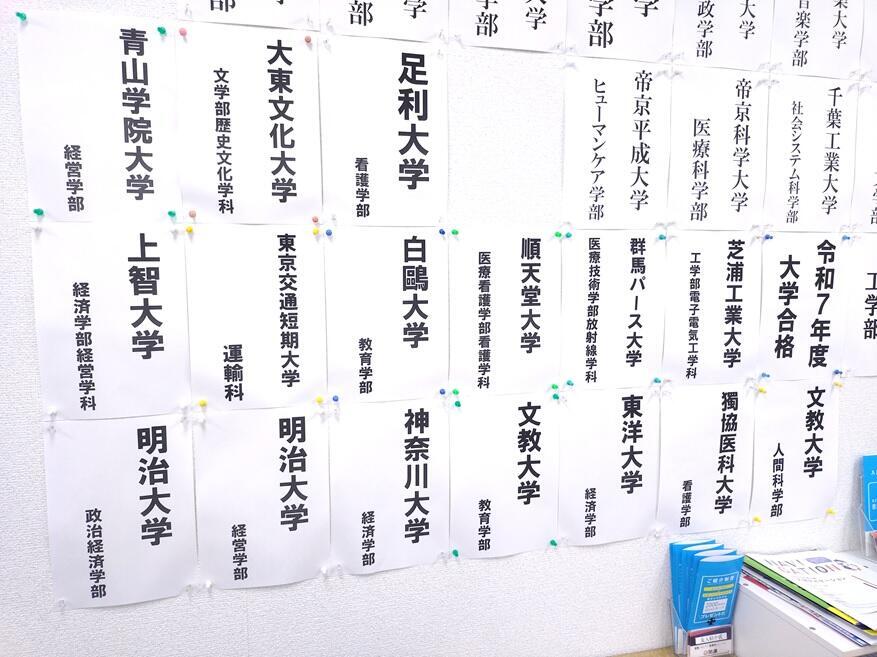 業大学
音楽学部
大学
政学部
大学
学部
大学
学部
千葉工業大学
社会システム科学部
帝京科学大学
医療科学部
帝京平成大学
ヒューマンケア学部
足利大学
看護学部
大東文化大学
文学部歴史文化学科
青山学院大学
経営学部
工学部
令和7年度
大学合格
芝浦工業大学
工学部電子電気工学科
群馬パース大学
医療技術学部放射線学科
順天堂大学
医療看護学部看護学科
白鷗大学
教育学部
東京交通短期大学
運輸科
上智大学
経済学部経営学科
文教大学
人間科学部
獨協医科大学
看護学部
東洋大学
経済学部
文教大学
教育学部
神奈川大学
経済学部
明治大学
経営学部
明治大学
政治経済学部
ご紹介制度